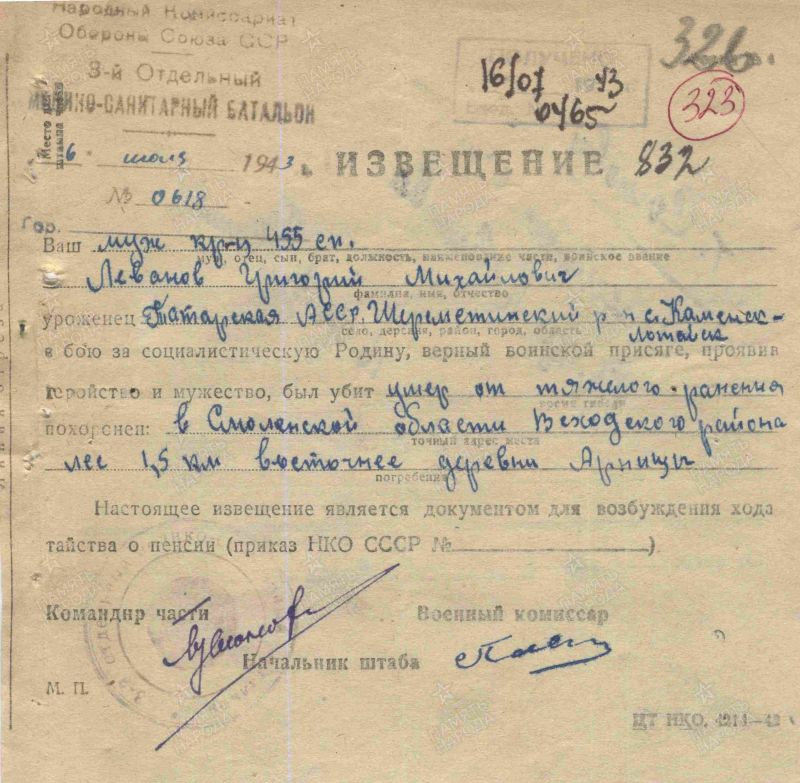 Народный Комиссариат
Обороны Союза ССР
3-й Отдельный
МЕДИКО-САНИТАРНЫЙ БАТАЛЬОН
Место для
штампа части
ПОЛУЧЕНО
16/07 43
0465
326.
323
6 июля 1943 г.
ИЗВЕЩЕНИЕ 832
№ 0618
Гор.
Ваш муж кр-ц 455 сп.
муж, отец, сын, брат, должность, наименование части, воинское звание
Леванов Григорий Михайлович
фамилия, имя, отчество
уроженец Татарская АССР. Шереметинский р-н с. Каменск-
село, деревня, район, город, область
в бою за социалистическую Родину, верный воинской присяге, проявив
геройство и мужество, был убит умер от тяжелого ранения
время гибели
похоронен: в Смоленской области района
точный адрес места
лес 1,5 км восточнее деревни Арнищы
погребения
Настоящее извещение является документом для возбуждения хода
тайства о пенсии (приказ НКО СССР № )
Командир части Военный комиссар
Начальник штаба
М. П.
ЦТ НКО. 4214—42